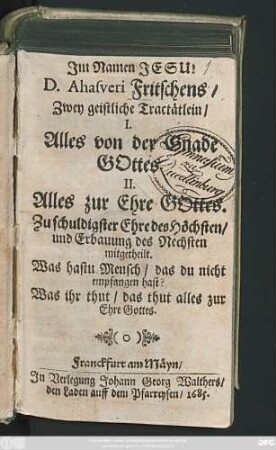 Im Namen JESU!
D. Ahasveri Fritschens /
Zwey geistliche Tractätlein /
I.
Alles von der Gnade
GOttes.
II.
Alles zur Ehre GOttes.
Zu schuldigster Ehre des Höchsten /
und Erbauung des Nechsten
mitgetheilt.
Was hastu Mensch / das du nicht
empfangen hast?
Was ihr thut / das thut alles zur
Ehre Gottes.
(o)
Franckfurt am Mäyn /
In Verlegung Johann Georg Walthers /
den Laden auff dem Pfarreysen / 1685.
Gymnasium
zu
Quedlinburg